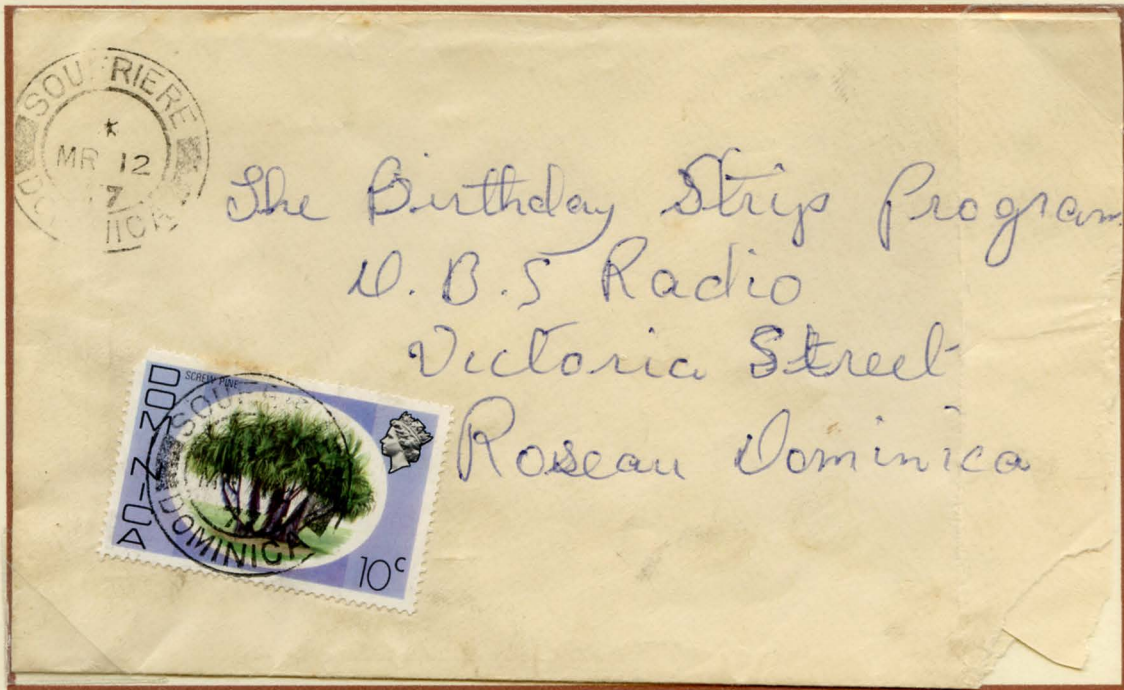 SOUFRIERE
*
MR 12
7
DOMINICA
The Birthday Strip Program
D.B.S Radio
Victoria Street
Roseau Dominica
DOMINICA
SCREW PINE
10c
DOMINICA